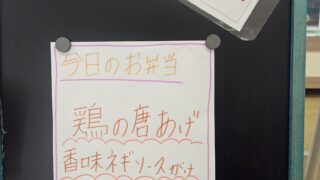 今日のお弁当
鶏の唐あげ
香味ネギソースがけ